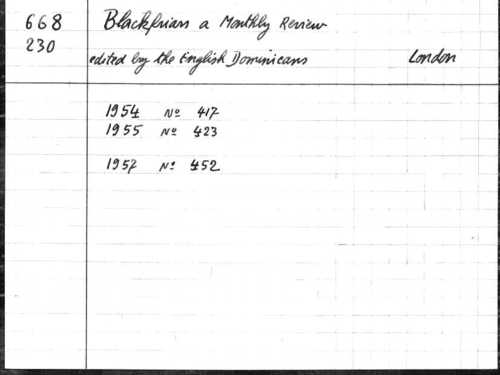 668 Blackfriars a Monthly Review
230
edited by the English Dominicans London
1954 Nº 417
1955 Nº 423
1957 Nº 452